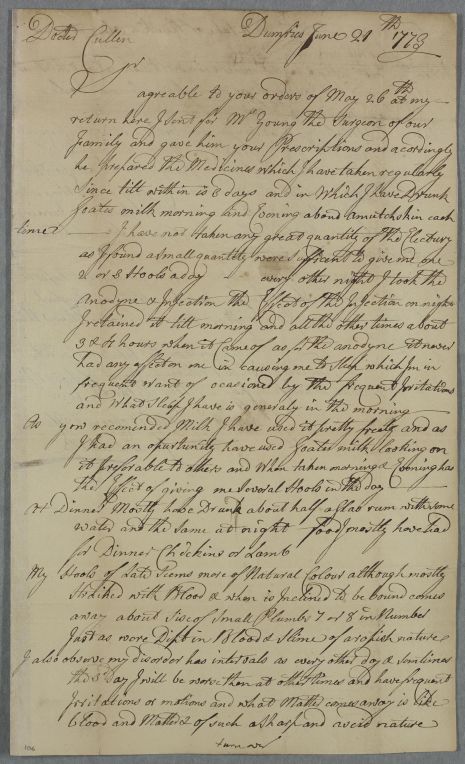 Docter Cullen Dumfries June 21th 1773
Sr
agreable to your orders of May 26th at my
return here I sent for Mr Young the Surgeon of our
family and gave him your Prescriptions and acordingly
he prepared the Medicines which I have taken regularly
Since till within is 8 days and in which I have Drunk
Goats milk morning and Evning about a mutchkin each
time I have not taken any great quantity of the Electury
as I found a small quantity were Sufficent to give me one
2 or 3 Stools a day every other night I took the
anodyne & Injection the Effect of the Injection on night
I retained it till morning and all the other times about
3 & 4 hours when it Came of as for the anodyne it never
had any effect on me in causing me to Sleep which I'm in
frequent want of ocasioned by the frequent Irritations
and What Sleep I have is generaly in the morning
As you recomended Milk I have used it pretty freely and as
I had an opurtunity have used Goats milk looking on
it preferable to others and When taken morning & Evening has
the Effect of giving me Several Stools in the day
At Dinner Mostly have Drunk about half a glab rum with some
Water and the Same at night food mostly have had
for Dinner Chickins or Lamb
My Stools of Late Seems more of Natural Colour although mostly
Striched with Blood & when is Inclined to be bound comes
away about Sise of Small Plumbs 7 or 8 in Number
Just as were Dipt in Blood & Slime of a ropish nature
I also observe my disordor has intervals as every other day & Somtimes
the 3d day I will be worse then at other times and have frequent
Irritations or motions and what Matter comes away is like
blood and Matter & of such a Sharp and acid nature
turn over
106